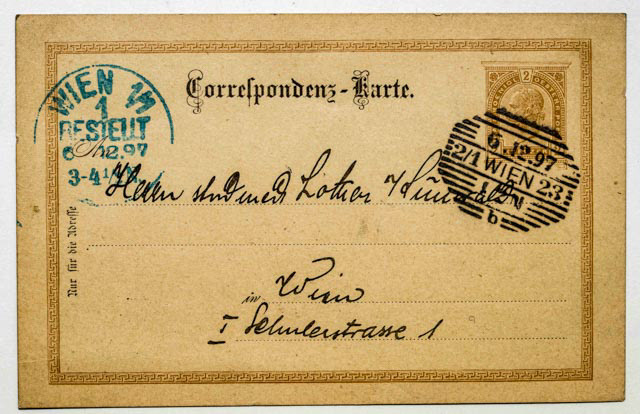 Correspondenz-Karte.
2
WIEN 1/1
1
BESTELLT
6 12.97
3-4½N.
6.12.97
2/1 WIEN 23
4-5N
b
Herrn stud med Lothar
Nur für die Adresse
in Wien
I Schulerstrasse 1